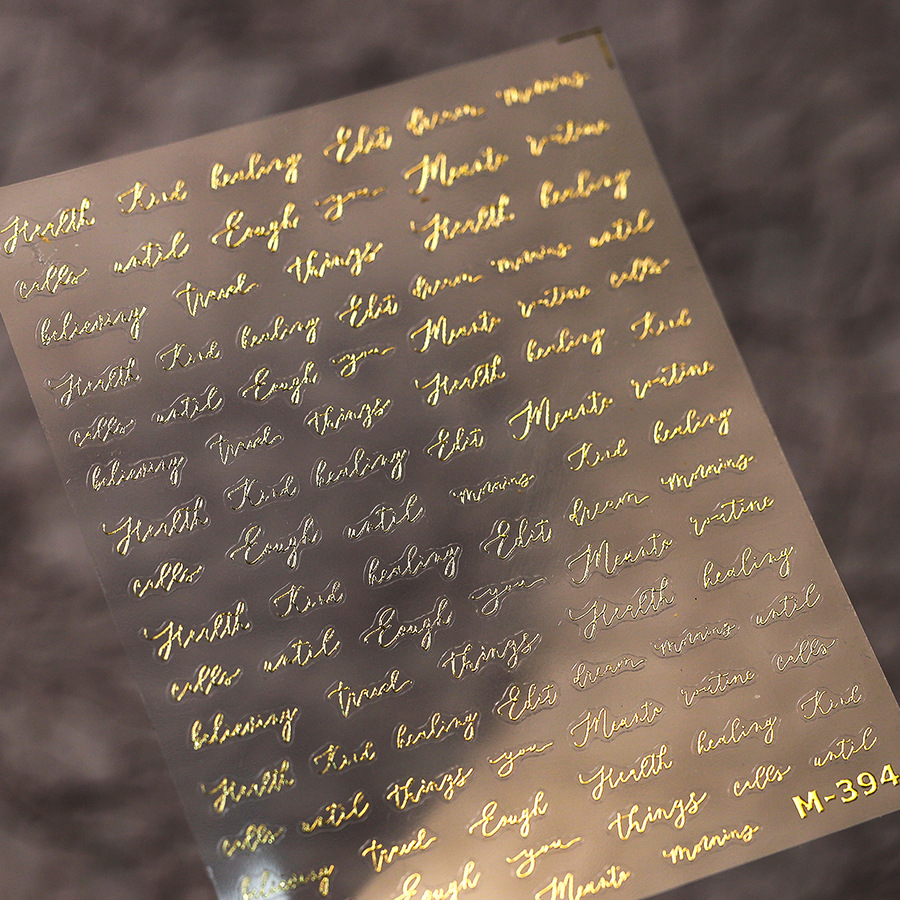 Health Kind healing Edit dream morning
calls until Eough you Meante routine
believing travel things Health healing
Health Kind healing Edit dream morning until
calls until Eough you Meante routine calls
believing travel things Health healing Kind
Health Kind healing Edit Meante routine
calls Eough until morning Kind healing
Health Kind healing Edit dream morning
calls until Eough you Meante routine
believing travel things Health healing
Health Kind healing Edit dream morning until
calls until things you Meante routine calls
believing travel Eough Health healing Kind
Eough you things calls until
Meante morning
M-394